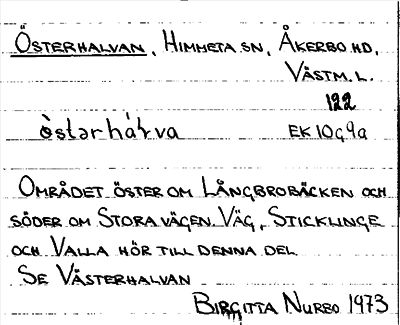 ÖSTERHALVAN, HIMMETA SN, ÅKERBO HD,
VÄSTM. L.
122
EK 10G9a
OMRÅDET ÖSTER OM LÅNGBROBÄCKEN OCH
SÖDER OM STORA VÄGEN. VÄG, STICKLINGE
OCH VALLA HÖR TILL DENNA DEL
SE VÄSTERHALVAN
BIRGITTA NURBO 1973